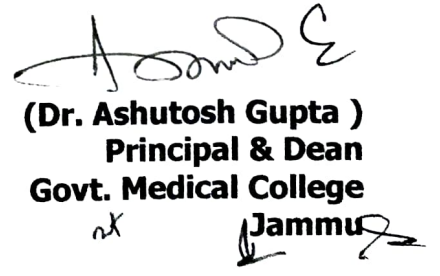 (Dr. Ashutosh Gupta )
Principal & Dean
Govt. Medical College
Jammu